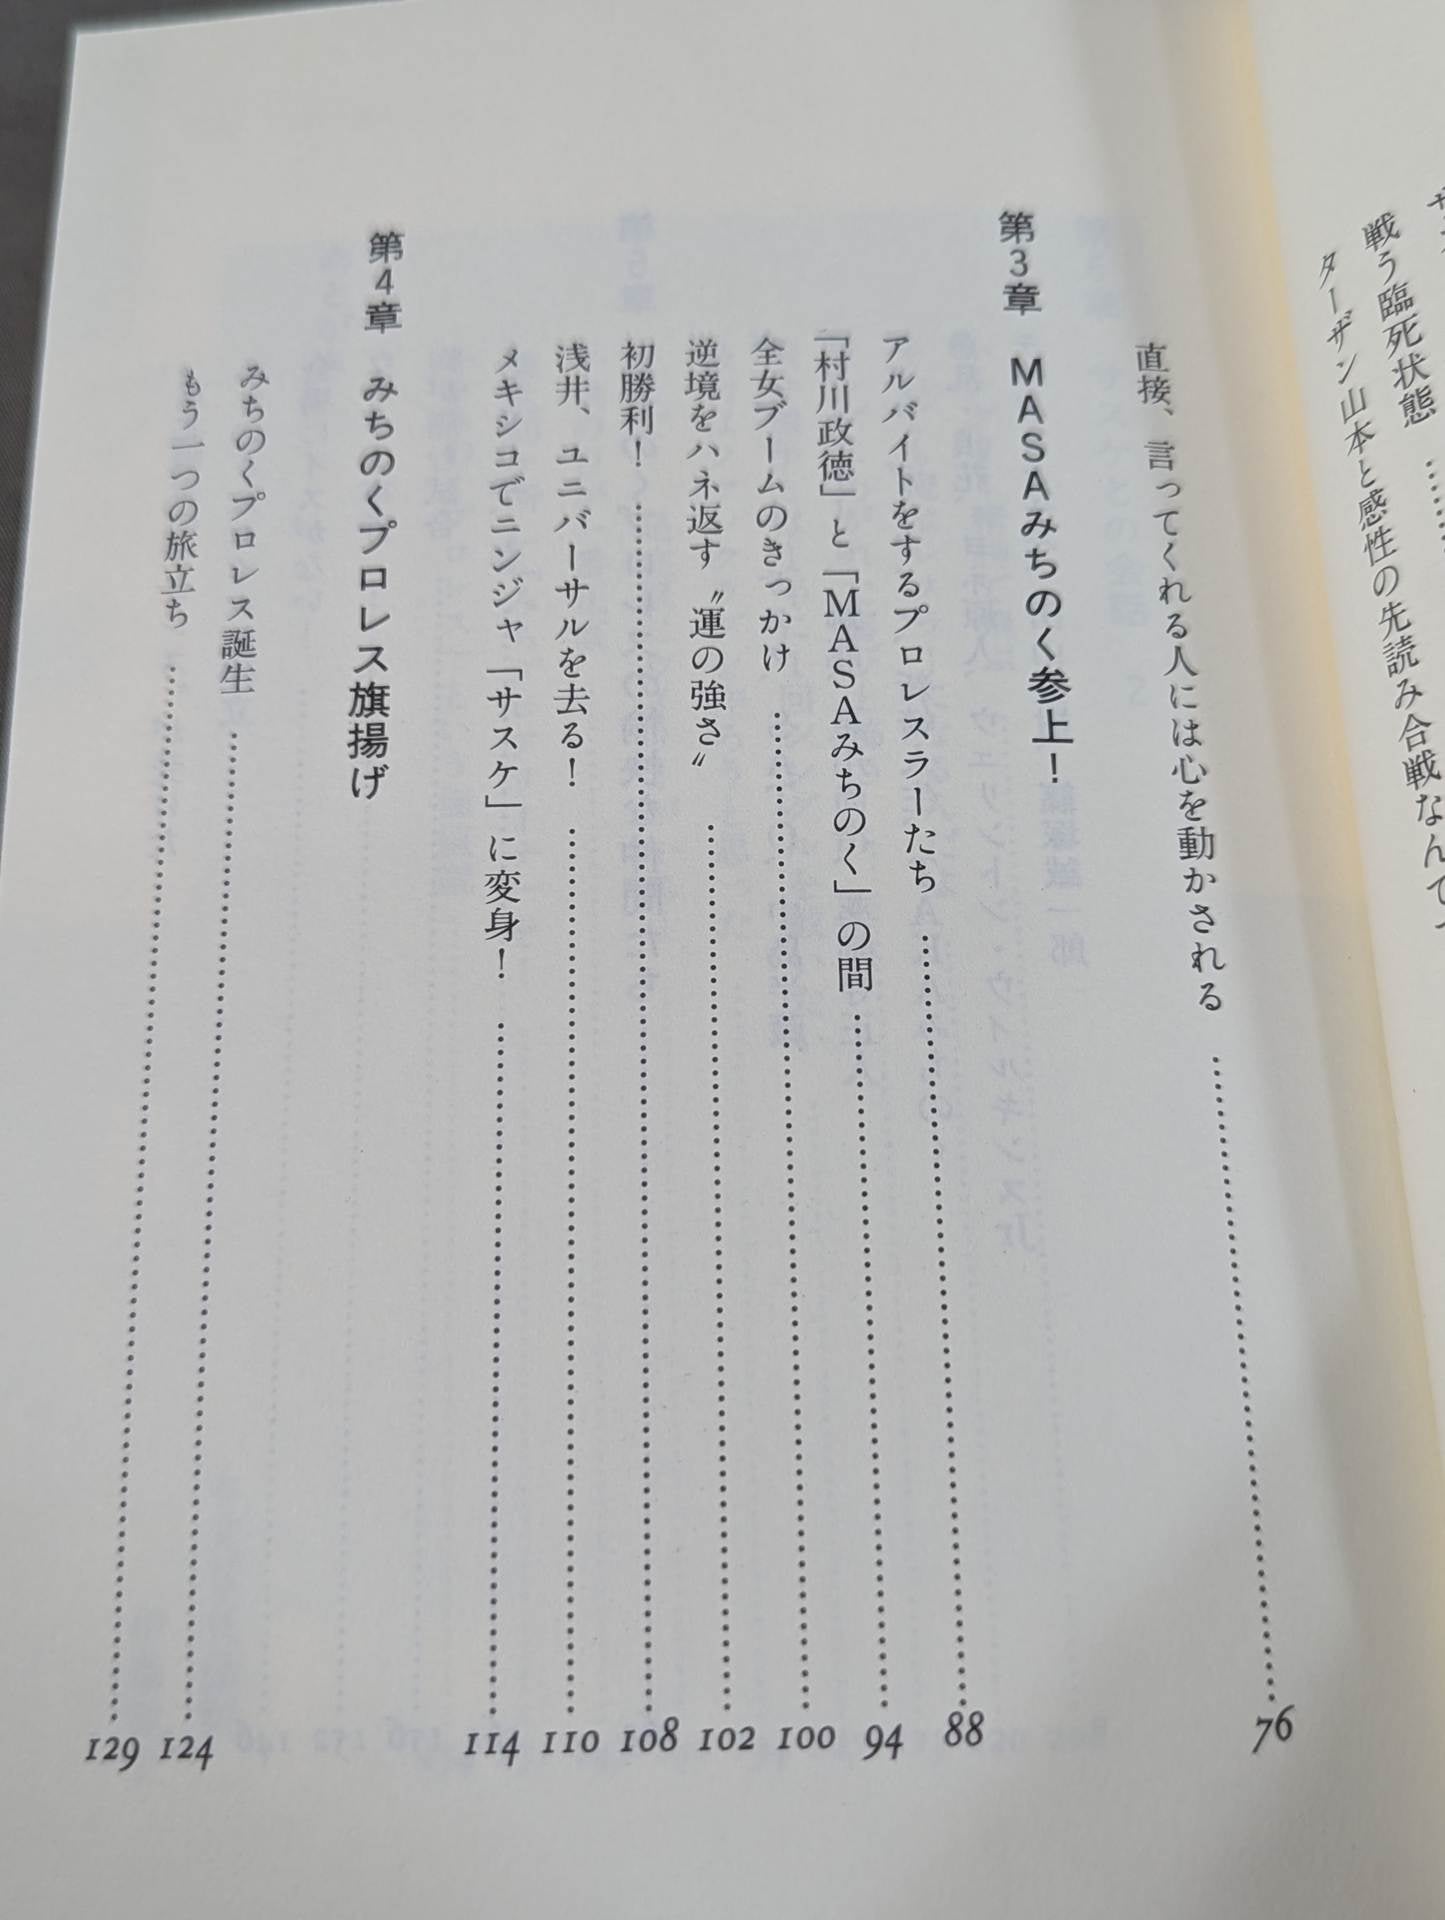 戦う臨死状態
ターザン山本と感性の先読み合戦なんて
直接、言ってくれる人には心を動かされる 76
第3章 MASAみちのく参上!
アルバイトをするプロレスラーたち 88
「村川政徳」と「MASAみちのく」の間 94
全女ブームのきっかけ 100
逆境をハネ返す〝運の強さ〟 102
初勝利! 108
浅井、ユニバーサルを去る! 110
メキシコでニンジャ「サスケ」に変身! 114
第4章 みちのくプロレス旗揚げ
みちのくプロレス誕生 124
もう一つの旅立ち 129